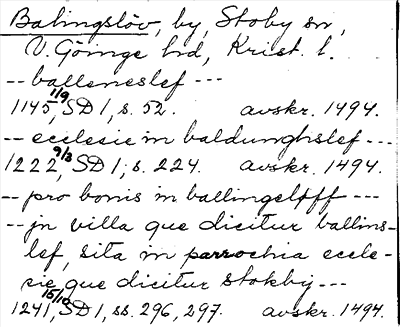 Balingslöv, by, Stoby sn,
V. Göinge hd, Krist. l.
-- balleneslef ---
1145 1/9, SD 1, s. 52. avskr. 1494.
-- ecclesie in baldunghslef ---
1222 9/3, SD 1, s. 224. avskr. 1494.
-- pro bonis in ballingeløff ---
-- jn villa que dicitur ballins-
lef, sita in parrochia eccle-
sie que dicitur stokby ---
1241 15/10, SD 1, ss. 296, 297. avskr. 1494.